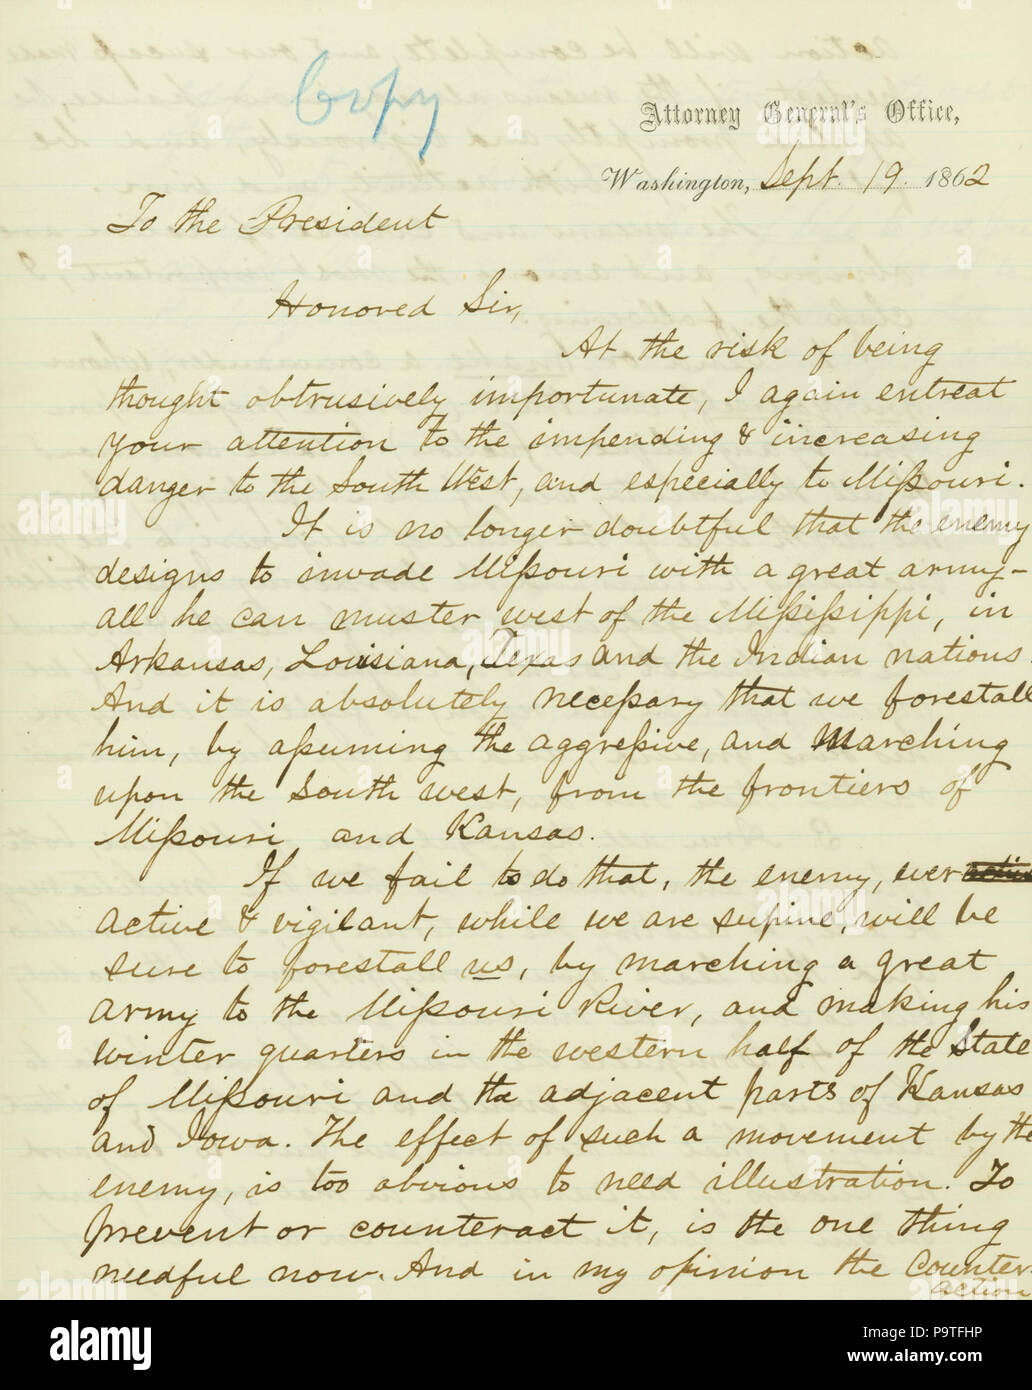 Copy
Attorney General's Office,
Washington, Sept. 19. 1862
To the President
Honored Sir,
At the risk of being
thought obtrusively importunate, I again entreat
your attention to the impending & increasing
danger to the South West, and especially to Mißouri.
It is no longer doubtful that the enemy
designs to invade Mißouri with a great army-
all he can muster west of the Mißißippi, in
Arkansas, Louisiana, Texas and the Indian nations.
And it is absolutely neceßary that we forestall
him, by aßuming the aggreßive, and Marching
upon the South west, from the frontiers of
Mißouri and Kansas.
If we fail to do that, the enemy, ever
active & vigilant, while we are supine, will be
sure to forestall us, by marching a great
army to the Mißouri River, and making his
winter quarters in the western half of the State
of Mißouri and the adjacent parts of Kansas
and Iowa. The effect of such a movement by the
enemy, is too obvious to need illustration. To
prevent or counteract it, is the one thing
needful now. And in my opinion the Counter-
action
alamy
Image ID: P9TFHP
www.alamy.com